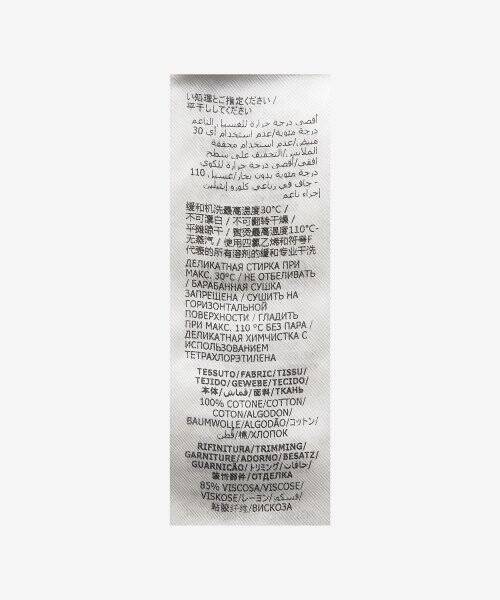 い処理とご指定ください /
平干ししてください
أقصى درجة حرارة للغسيل الناعم
30 درجة مئوية/عدم استخدام أي
مبيض/عدم استخدام مجففة
الملابس/التجفيف على سطح
أفقي/أقصى درجة حرارة للكوي
110 درجة مئوية بدون بخار/غسيل
جاف في رباعي كلورو إيثيلين -
إجراء ناعم
缓和机洗最高温度30°C /
不可漂白 / 不可翻转干燥 /
平摊晾干 / 熨烫最高温度110°C-
无蒸汽 / 使用四氯乙烯和符号F
代表的所有溶剂的缓和专业干洗
ДЕЛИКАТНАЯ СТИРКА ПРИ
МАКС. 30°C / НЕ ОТБЕЛИВАТЬ
/ БАРАБАННАЯ СУШКА
ЗАПРЕЩЕНА / СУШИТЬ НА
ГОРИЗОНТАЛЬНОЙ
ПОВЕРХНОСТИ / ГЛАДИТЬ
ПРИ МАКС. 110 °C БЕЗ ПАРА /
ДЕЛИКАТНАЯ ХИМЧИСТКА С
ИСПОЛЬЗОВАНИЕМ
ТЕТРАХЛОРЭТИЛЕНА
TESSUTO/FABRIC/TISSU/
TEJIDO/GEWEBE/TECIDO/
本体/قماش/面料/ТКАНЬ
100% COTONE/COTTON/
COTON/ALGODON/
BAUMWOLLE/ALGODÃO/コットン/
قطن/棉/ХЛОПОК
RIFINITURA/TRIMMING/
GARNITURE/ADORNO/BESATZ/
GUARNICÃO/トリミング/حافات/
装饰部件/ОТДЕЛКА
85% VISCOSA/VISCOSE/
VISKOSE/レーヨン/فسكوز/
粘胶纤维/ВИСКОЗА